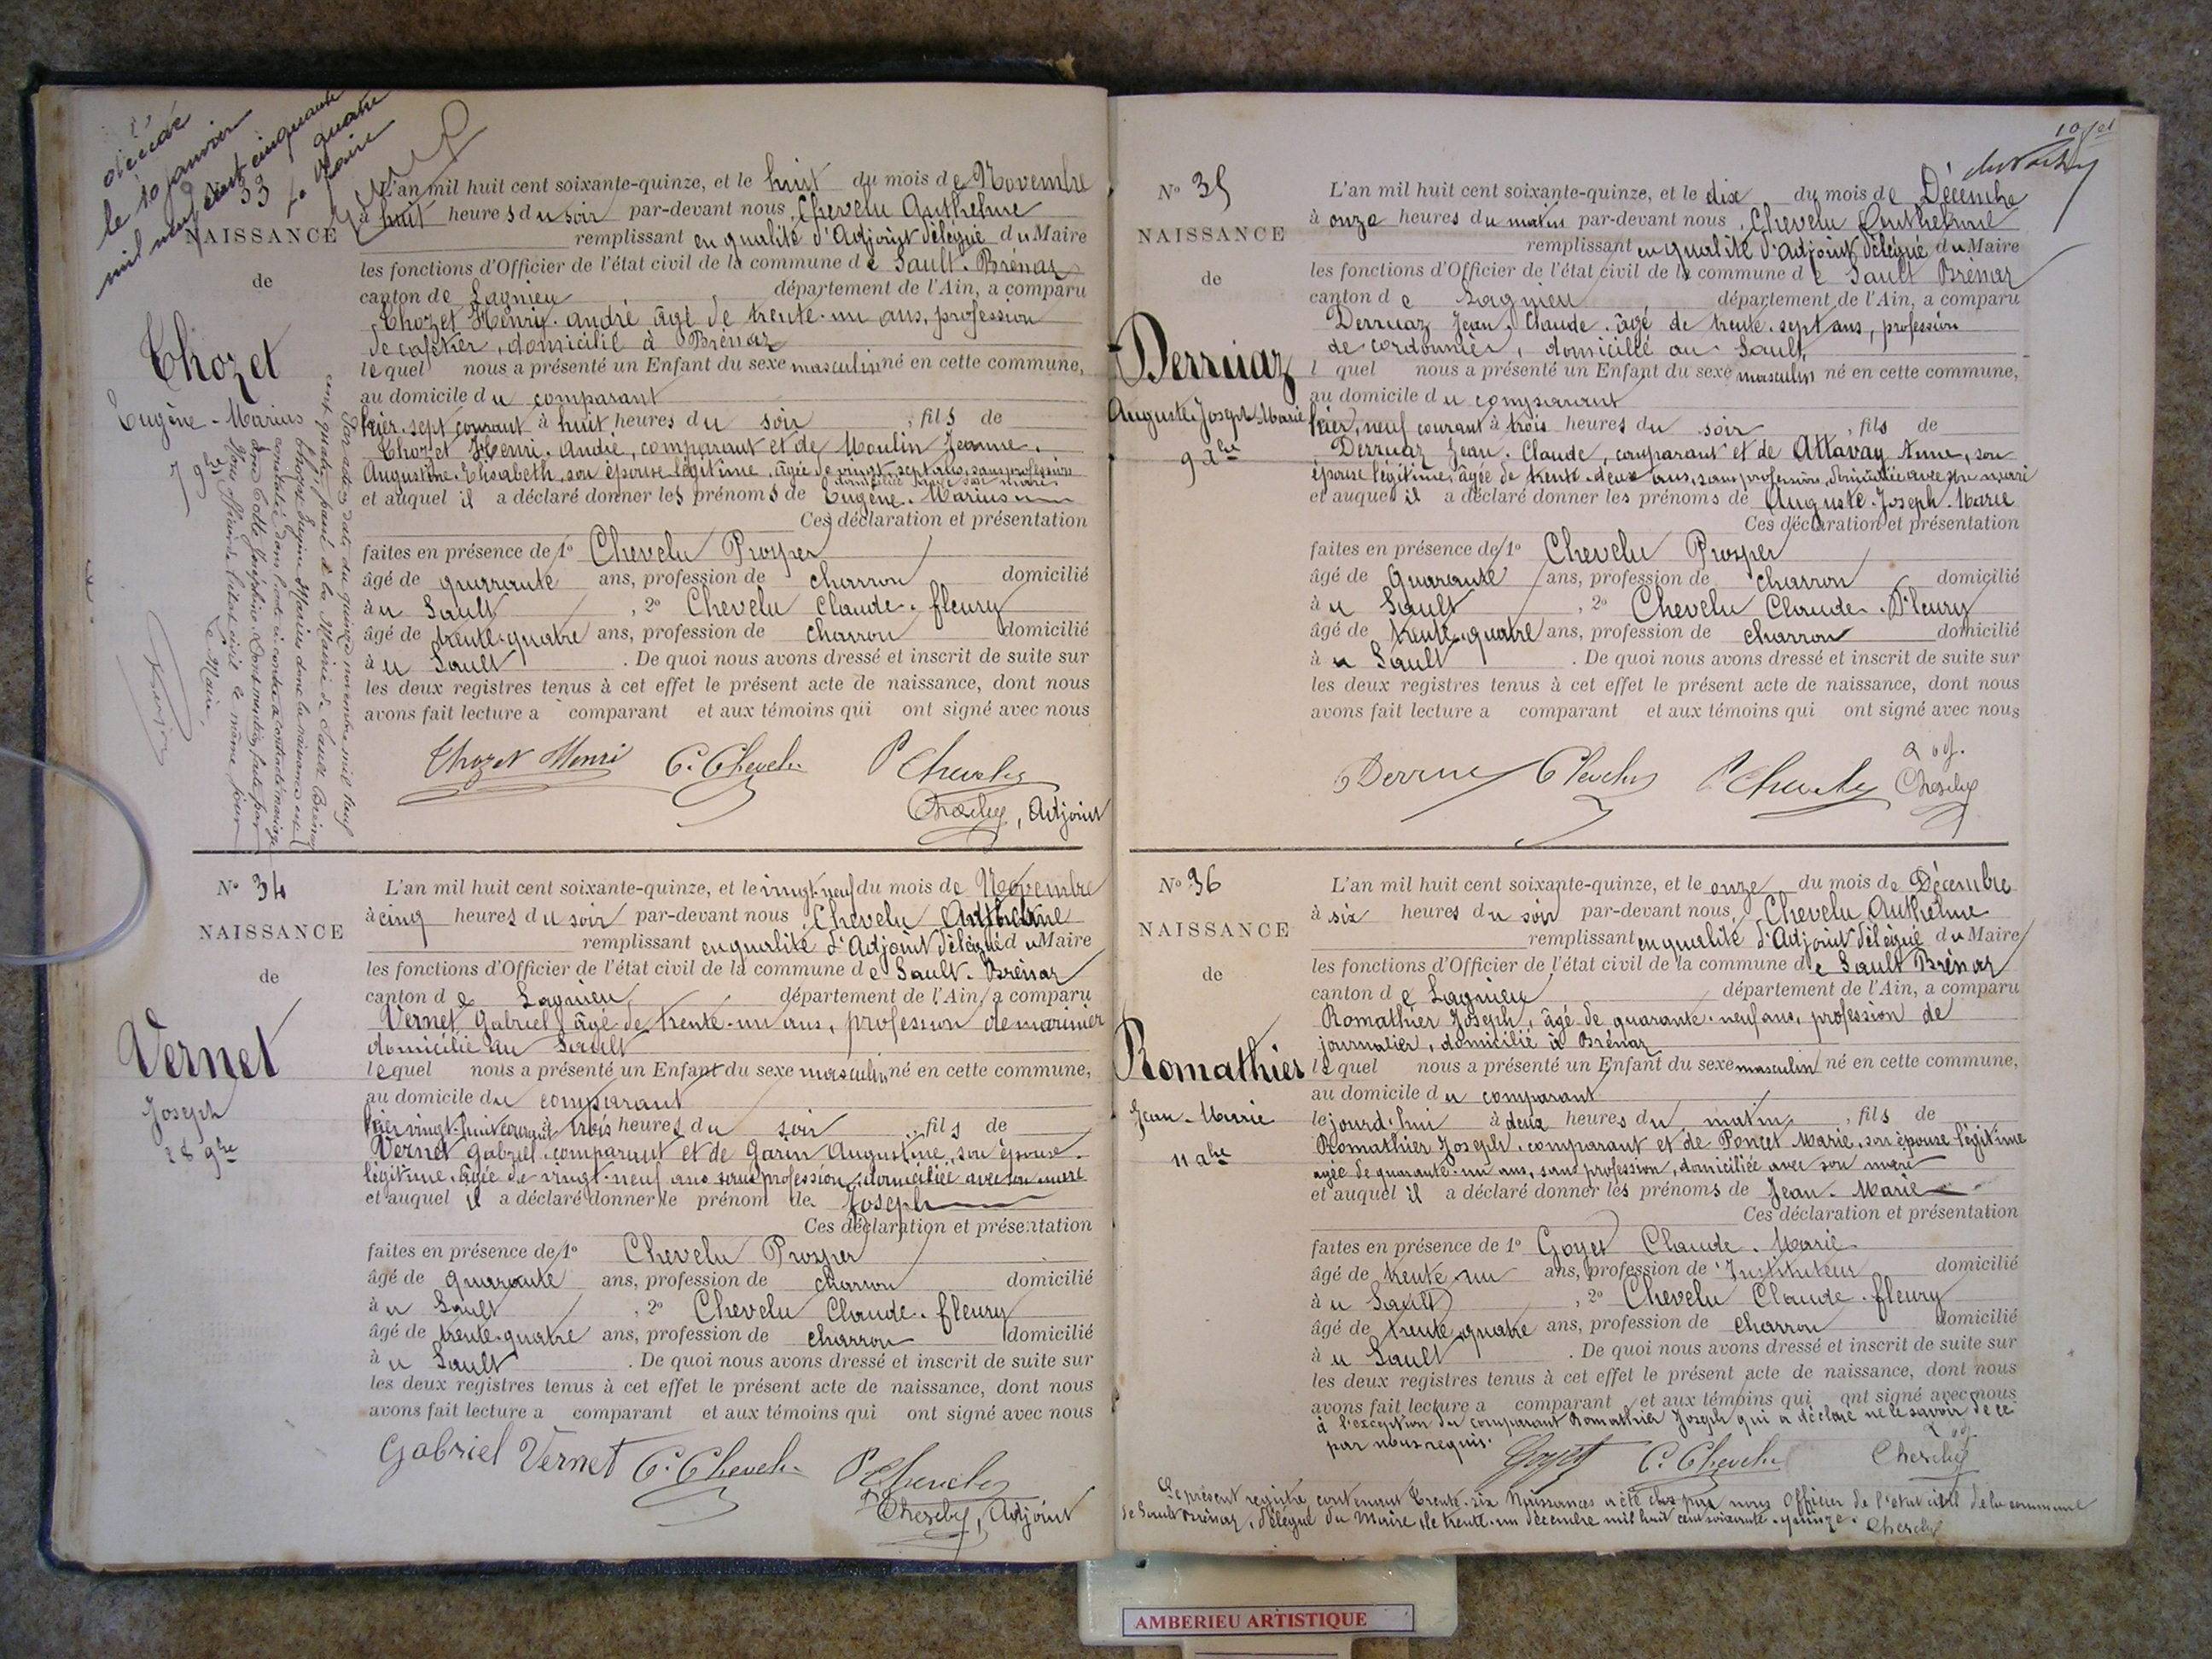 décédé
le 10 janvier
mil neuf cent cinquante
quatre
33 Le Maire
NAISSANCE
de
Thozet
Eugène-Marius
7 9bre
L'an mil huit cent soixante-quinze, et le huit du mois de Novembre
à huit heures du soir par-devant nous, Chevelu Anthelme
remplissant en qualité d'Adjoint délégué du Maire
les fonctions d'Officier de l'état civil de la commune de Sault-Brénaz
canton de Lagnieu département de l'Ain, a comparu
Thozet Henri-André âgé de trente-un ans, profession
de cafetier, domicilié à Brénaz
lequel nous a présenté un Enfant du sexe masculin né en cette commune,
au domicile du comparant
hier, sept courant à huit heures du soir, fils de
Thozet Henri-André, comparant et de Moulin Jeanne-
Augustine-Elisabeth, son épouse légitime, âgée de vingt-sept ans, sans profession
domiciliée avec son mari
et auquel il a déclaré donner les prénoms de Eugène-Marius
Ces déclaration et présentation
faites en présence de 1o Chevelu Prosper
âgé de quarante ans, profession de charron domicilié
au Sault, 2o Chevelu Claude-fleury
âgé de trente-quatre ans, profession de charron domicilié
au Sault. De quoi nous avons dressé et inscrit de suite sur
les deux registres tenus à cet effet le présent acte de naissance, dont nous
avons fait lecture a comparant et aux témoins qui ont signé avec nous
Thozet Henri C. Chevelu P Chevelu
Chevelu, Adjoint
Par acte en date du quinze novembre mil neuf
cent quatre, passé à la Mairie de Sault Brénaz
Thozet Eugène Marius dont la naissance est
constatée dans l'acte ci-contre a contracté mariage
avec Joséphine Dont mention faite par
Nous officier de l'état civil le même jour
Le Maire,
No 34
NAISSANCE
de
Vernet
Joseph
28 9bre
L'an mil huit cent soixante-quinze, et le vingt-neuf du mois de Novembre
à cinq heures du soir par-devant nous, Chevelu Anthelme
remplissant en qualité d'Adjoint délégué du Maire
les fonctions d'Officier de l'état civil de la commune de Sault-Brénaz
canton de Lagnieu département de l'Ain, a comparu
Vernet Gabriel, âgé de trente-un ans, profession de marinier
domicilié au Sault
lequel nous a présenté un Enfant du sexe masculin né en cette commune,
au domicile du comparant
hier vingt-huit courant à trois heures du soir, fils de
Vernet Gabriel, comparant et de Garin Augustine, son épouse
légitime, âgée de vingt-neuf ans sans profession, domiciliée avec son mari
et auquel il a déclaré donner le prénom de Joseph
Ces déclaration et présentation
faites en présence de 1o Chevelu Prosper
âgé de quarante ans, profession de charron domicilié
au Sault, 2o Chevelu Claude-fleury
âgé de trente-quatre ans, profession de charron domicilié
au Sault. De quoi nous avons dressé et inscrit de suite sur
les deux registres tenus à cet effet le présent acte de naissance, dont nous
avons fait lecture a comparant et aux témoins qui ont signé avec nous
Gabriel Vernet C. Chevelu P Chevelu
Chevelu, Adjoint
No 35
NAISSANCE
de
Derruaz
Auguste-Joseph-Marie
9 Xbre
L'an mil huit cent soixante-quinze, et le dix du mois de Décembre
à onze heures du matin par-devant nous, Chevelu Anthelme
remplissant en qualité d'Adjoint délégué du Maire
les fonctions d'Officier de l'état civil de la commune de Sault Brénaz
canton de Lagnieu département de l'Ain, a comparu
Derruaz Jean-Claude, âgé de trente-sept ans, profession
de cordonnier, domicilié au Sault,
l quel nous a présenté un Enfant du sexe masculin né en cette commune,
au domicile du comparant
hier, neuf courant à trois heures du soir, fils de
Derruaz Jean-Claude, comparant et de Attavay Anne, son
épouse légitime, âgée de trente-deux ans, sans profession, domiciliée avec son mari
et auquel il a déclaré donner les prénoms de Auguste-Joseph-Marie
Ces déclaration et présentation
faites en présence de 1o Chevelu Prosper
âgé de quarante ans, profession de charron domicilié
au Sault, 2o Chevelu Claude-Fleury
âgé de trente-quatre ans, profession de charron domicilié
au Sault. De quoi nous avons dressé et inscrit de suite sur
les deux registres tenus à cet effet le présent acte de naissance, dont nous
avons fait lecture a comparant et aux témoins qui ont signé avec nous
C Chevelu P Chevelu Chevelu
No 36
NAISSANCE
de
Romathier
Jean-Marie
11 Xbre
L'an mil huit cent soixante-quinze, et le onze du mois de Décembre
à six heures du soir par-devant nous, Chevelu Anthelme
remplissant en qualité d'Adjoint délégué du Maire
les fonctions d'Officier de l'état civil de la commune de Sault Brénaz
canton de Lagnieu département de l'Ain, a comparu
Romathier Joseph, âgé de quarante-neuf ans, profession de
journalier, domicilié à Brénaz
lequel nous a présenté un Enfant du sexe masculin né en cette commune,
au domicile du comparant
lejourd'hui à deux heures du matin, fils de
Romathier Joseph, comparant et de Poncet Marie, son épouse légitime
agée de quarante-un ans, sans profession, domiciliée avec son mari
et auquel il a déclaré donner les prénoms de Jean-Marie
Ces déclaration et présentation
faites en présence de 1o Goyet Claude-Marie
âgé de trente-un ans, profession de Instituteur domicilié
au Sault, 2o Chevelu Claude-fleury
âgé de trente-quatre ans, profession de charron domicilié
au Sault. De quoi nous avons dressé et inscrit de suite sur
les deux registres tenus à cet effet le présent acte de naissance, dont nous
avons fait lecture a comparant et aux témoins qui ont signé avec nous
à l'exception du comparant Romathier Joseph qui a déclaré ne le savoir de ce
par nous requis.
Goyet C. Chevelu Chevelu
Le présent registre contenant trente-six Naissances a été clos par nous Officier de l'état civil de la commune
de Sault Brénaz, délégué du Maire, le trente-un décembre mil huit cent soixante-quinze. Chevelu
AMBERIEU ARTISTIQUE